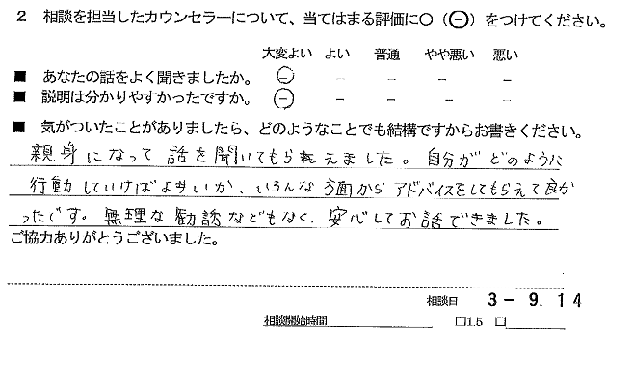 2 相談を担当したカウンセラーについて、当てはまる評価に○（⊖）をつけてください。
大変よい よい 普通 やや悪い 悪い
■ あなたの話をよく聞きましたか。 ⊖ － － － －
■ 説明は分かりやすかったですか。 ⊖ － － － －
■ 気がついたことがありましたら、どのようなことでも結構ですからお書きください。
親身になって話を聞いてもらえました。自分がどのように
行動していけばよいか、いろんな方面からアドバイスをしてもらえて良か
ったです。無理な勧誘などもなく、安心してお話できました。
ご協力ありがとうございました。
相談日 3-9.14
相談開始時間 □1.5 □